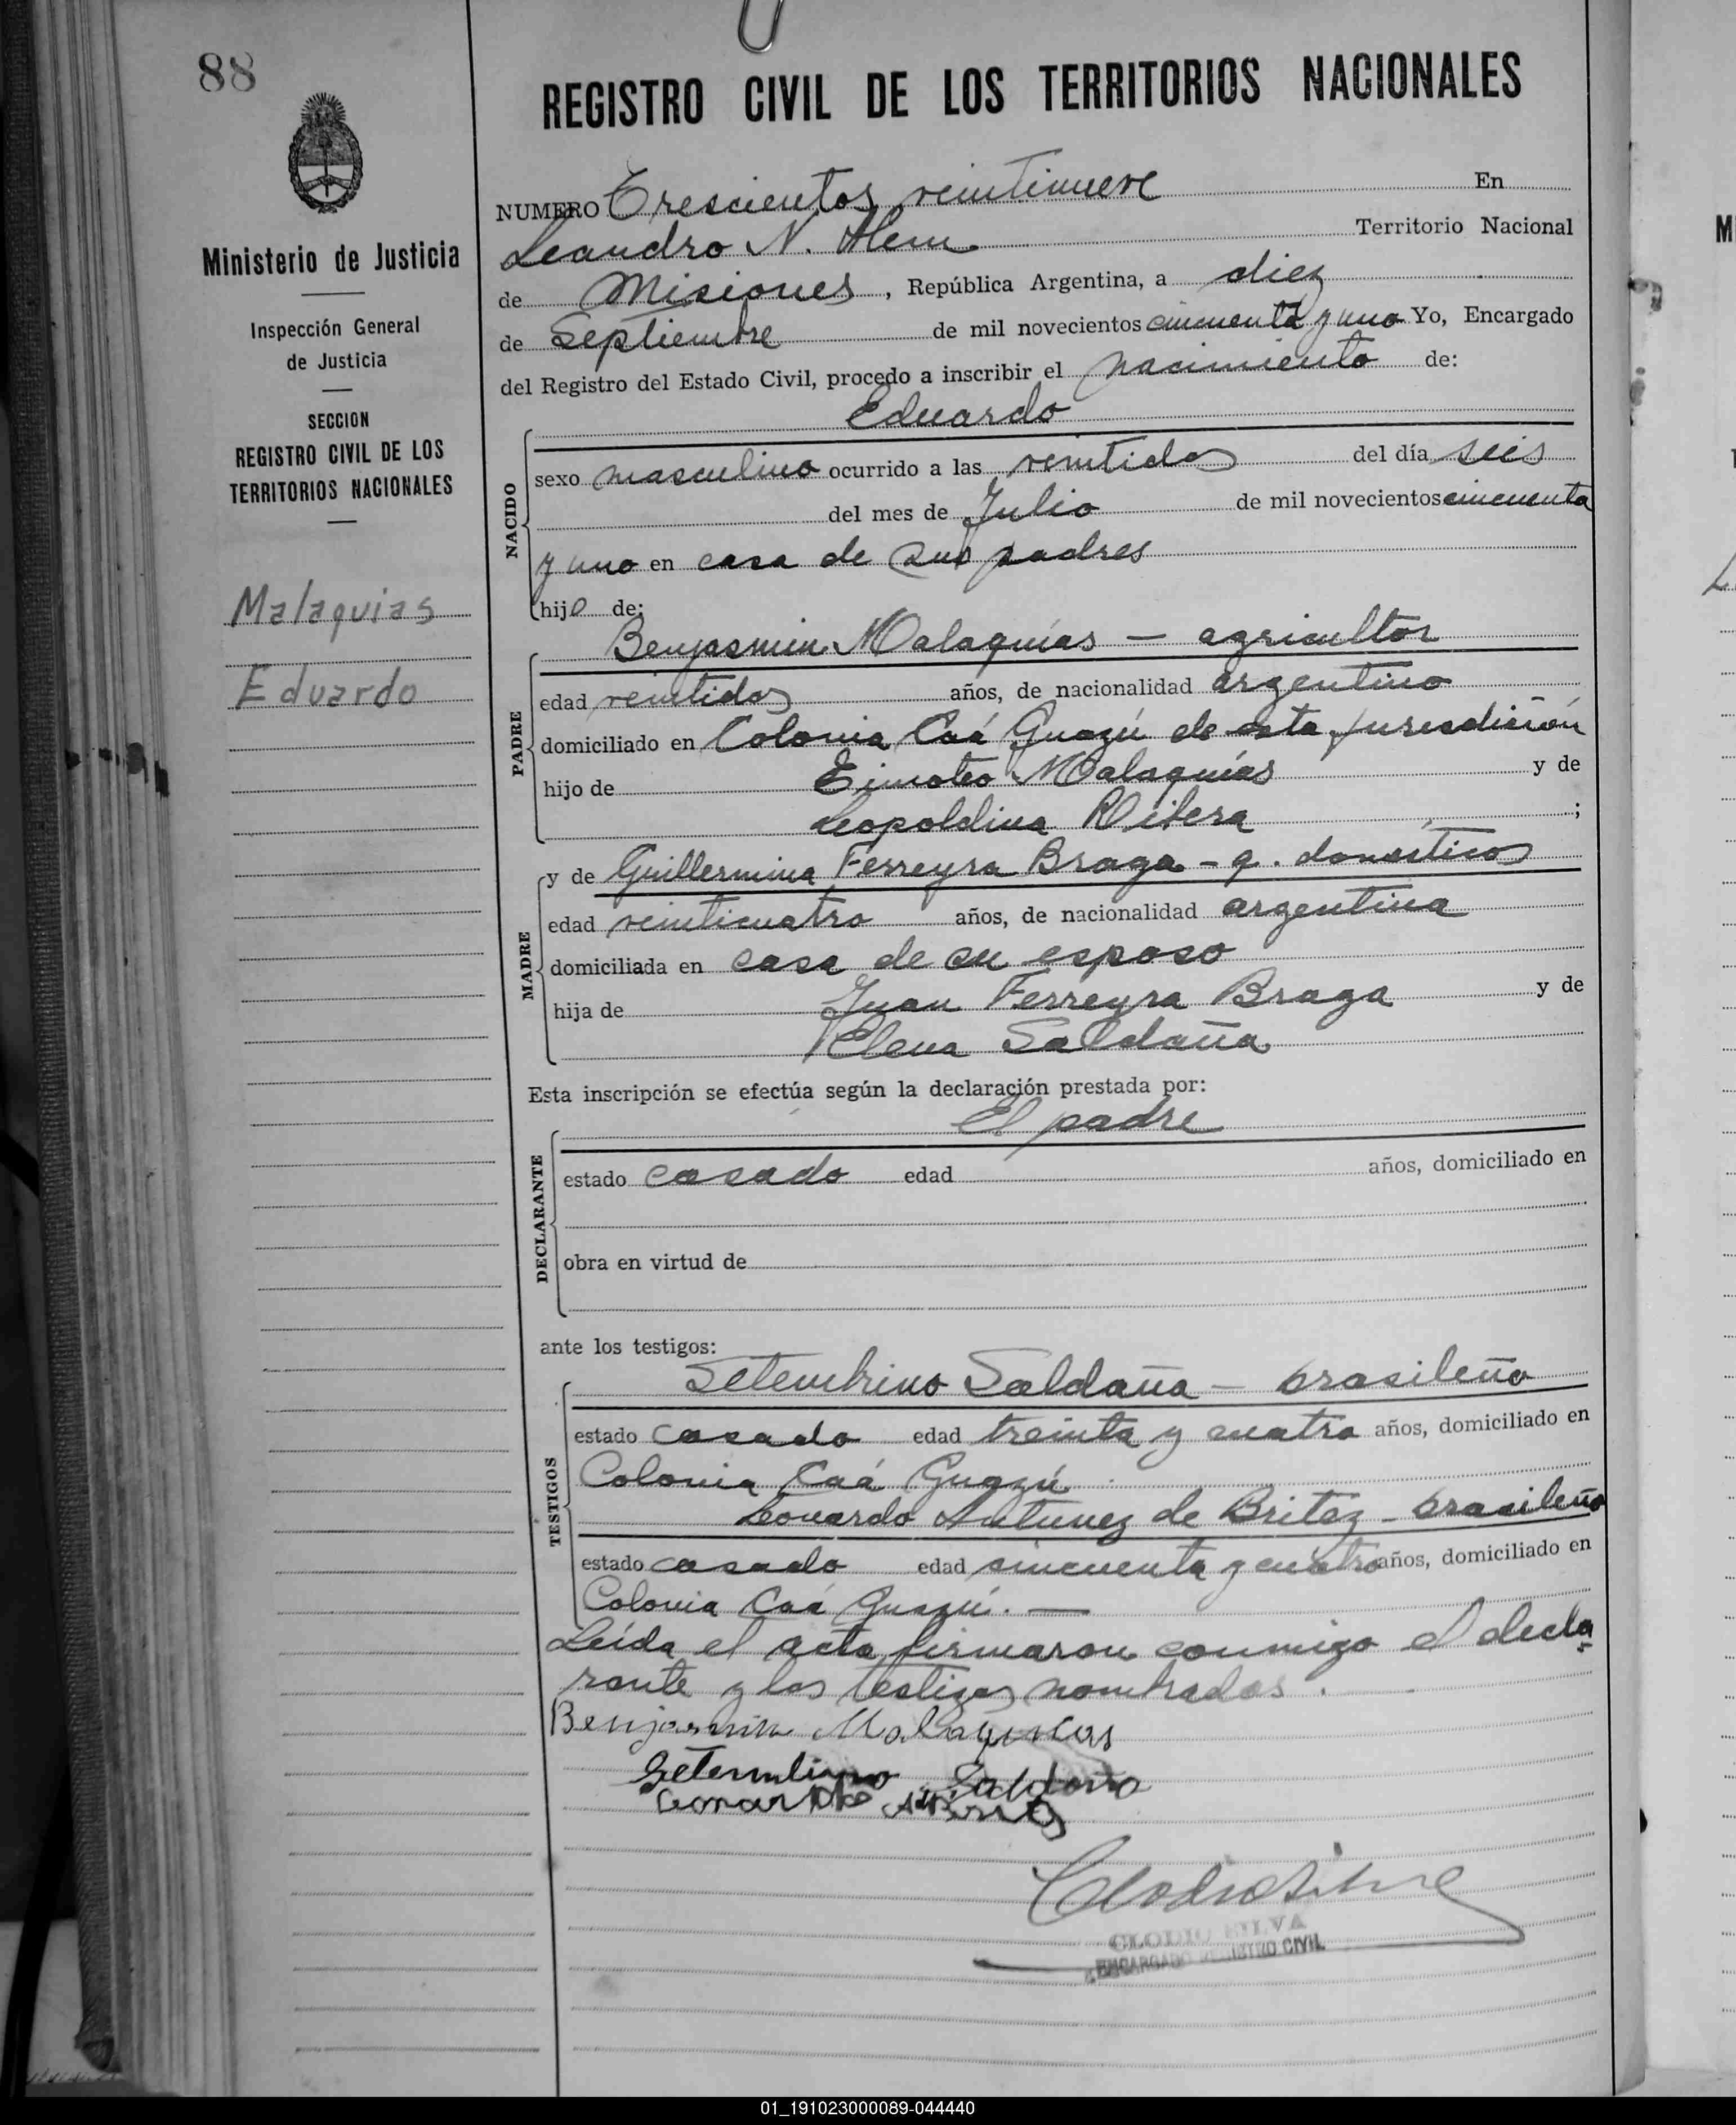 88
REGISTRO CIVIL DE LOS TERRITORIOS NACIONALES
Ministerio de Justicia
Inspección General
de Justicia
SECCION
REGISTRO CIVIL DE LOS
TERRITORIOS NACIONALES
Malaquias
Eduardo
NUMERO Trescientos veintinueve En
Leandro N. Alem Territorio Nacional
de Misiones, República Argentina, a diez
de Septiembre de mil novecientos cincuenta y uno Yo, Encargado
del Registro del Estado Civil, procedo a inscribir el nacimiento de:
Eduardo
NACIDO
sexo masculino ocurrido a las veintidos del día seis
del mes de Julio de mil novecientos cincuenta
y uno en casa de sus padres
hijo de:
Benjasmin Malaquías — agricultor
PADRE
edad veintidos años, de nacionalidad argentino
domiciliado en Colonia Caá Guazú de esta jurisdición
hijo de Timoteo Malaquías y de
Leopoldina Ribera ;
y de Guillermina Ferreyra Braga - q. domésticos
MADRE
edad veinticuatro años, de nacionalidad argentina
domiciliada en casa de su esposo
hija de Juan Ferreyra Braga y de
Elena Saldaña
Esta inscripción se efectúa según la declaración prestada por:
El padre
DECLARANTE
estado casado edad años, domiciliado en
obra en virtud de
ante los testigos:
Setembrino Saldaña — brasileño
TESTIGOS
estado casado edad treinta y cuatro años, domiciliado en
Colonia Caá Guazú
Leonardo Antunez de Britez - brasileño
estado casado edad cincuenta y cuatro años, domiciliado en
Colonia Caá Guazú. —
Leída el acta, firmaron conmigo el decla-
rante y los testigos nombrados.
Benjasmin Malaquias
Setembrino Saldaña
CLODIO SILVA
ENCARGADO REGISTRO CIVIL
01_191023000089-044440